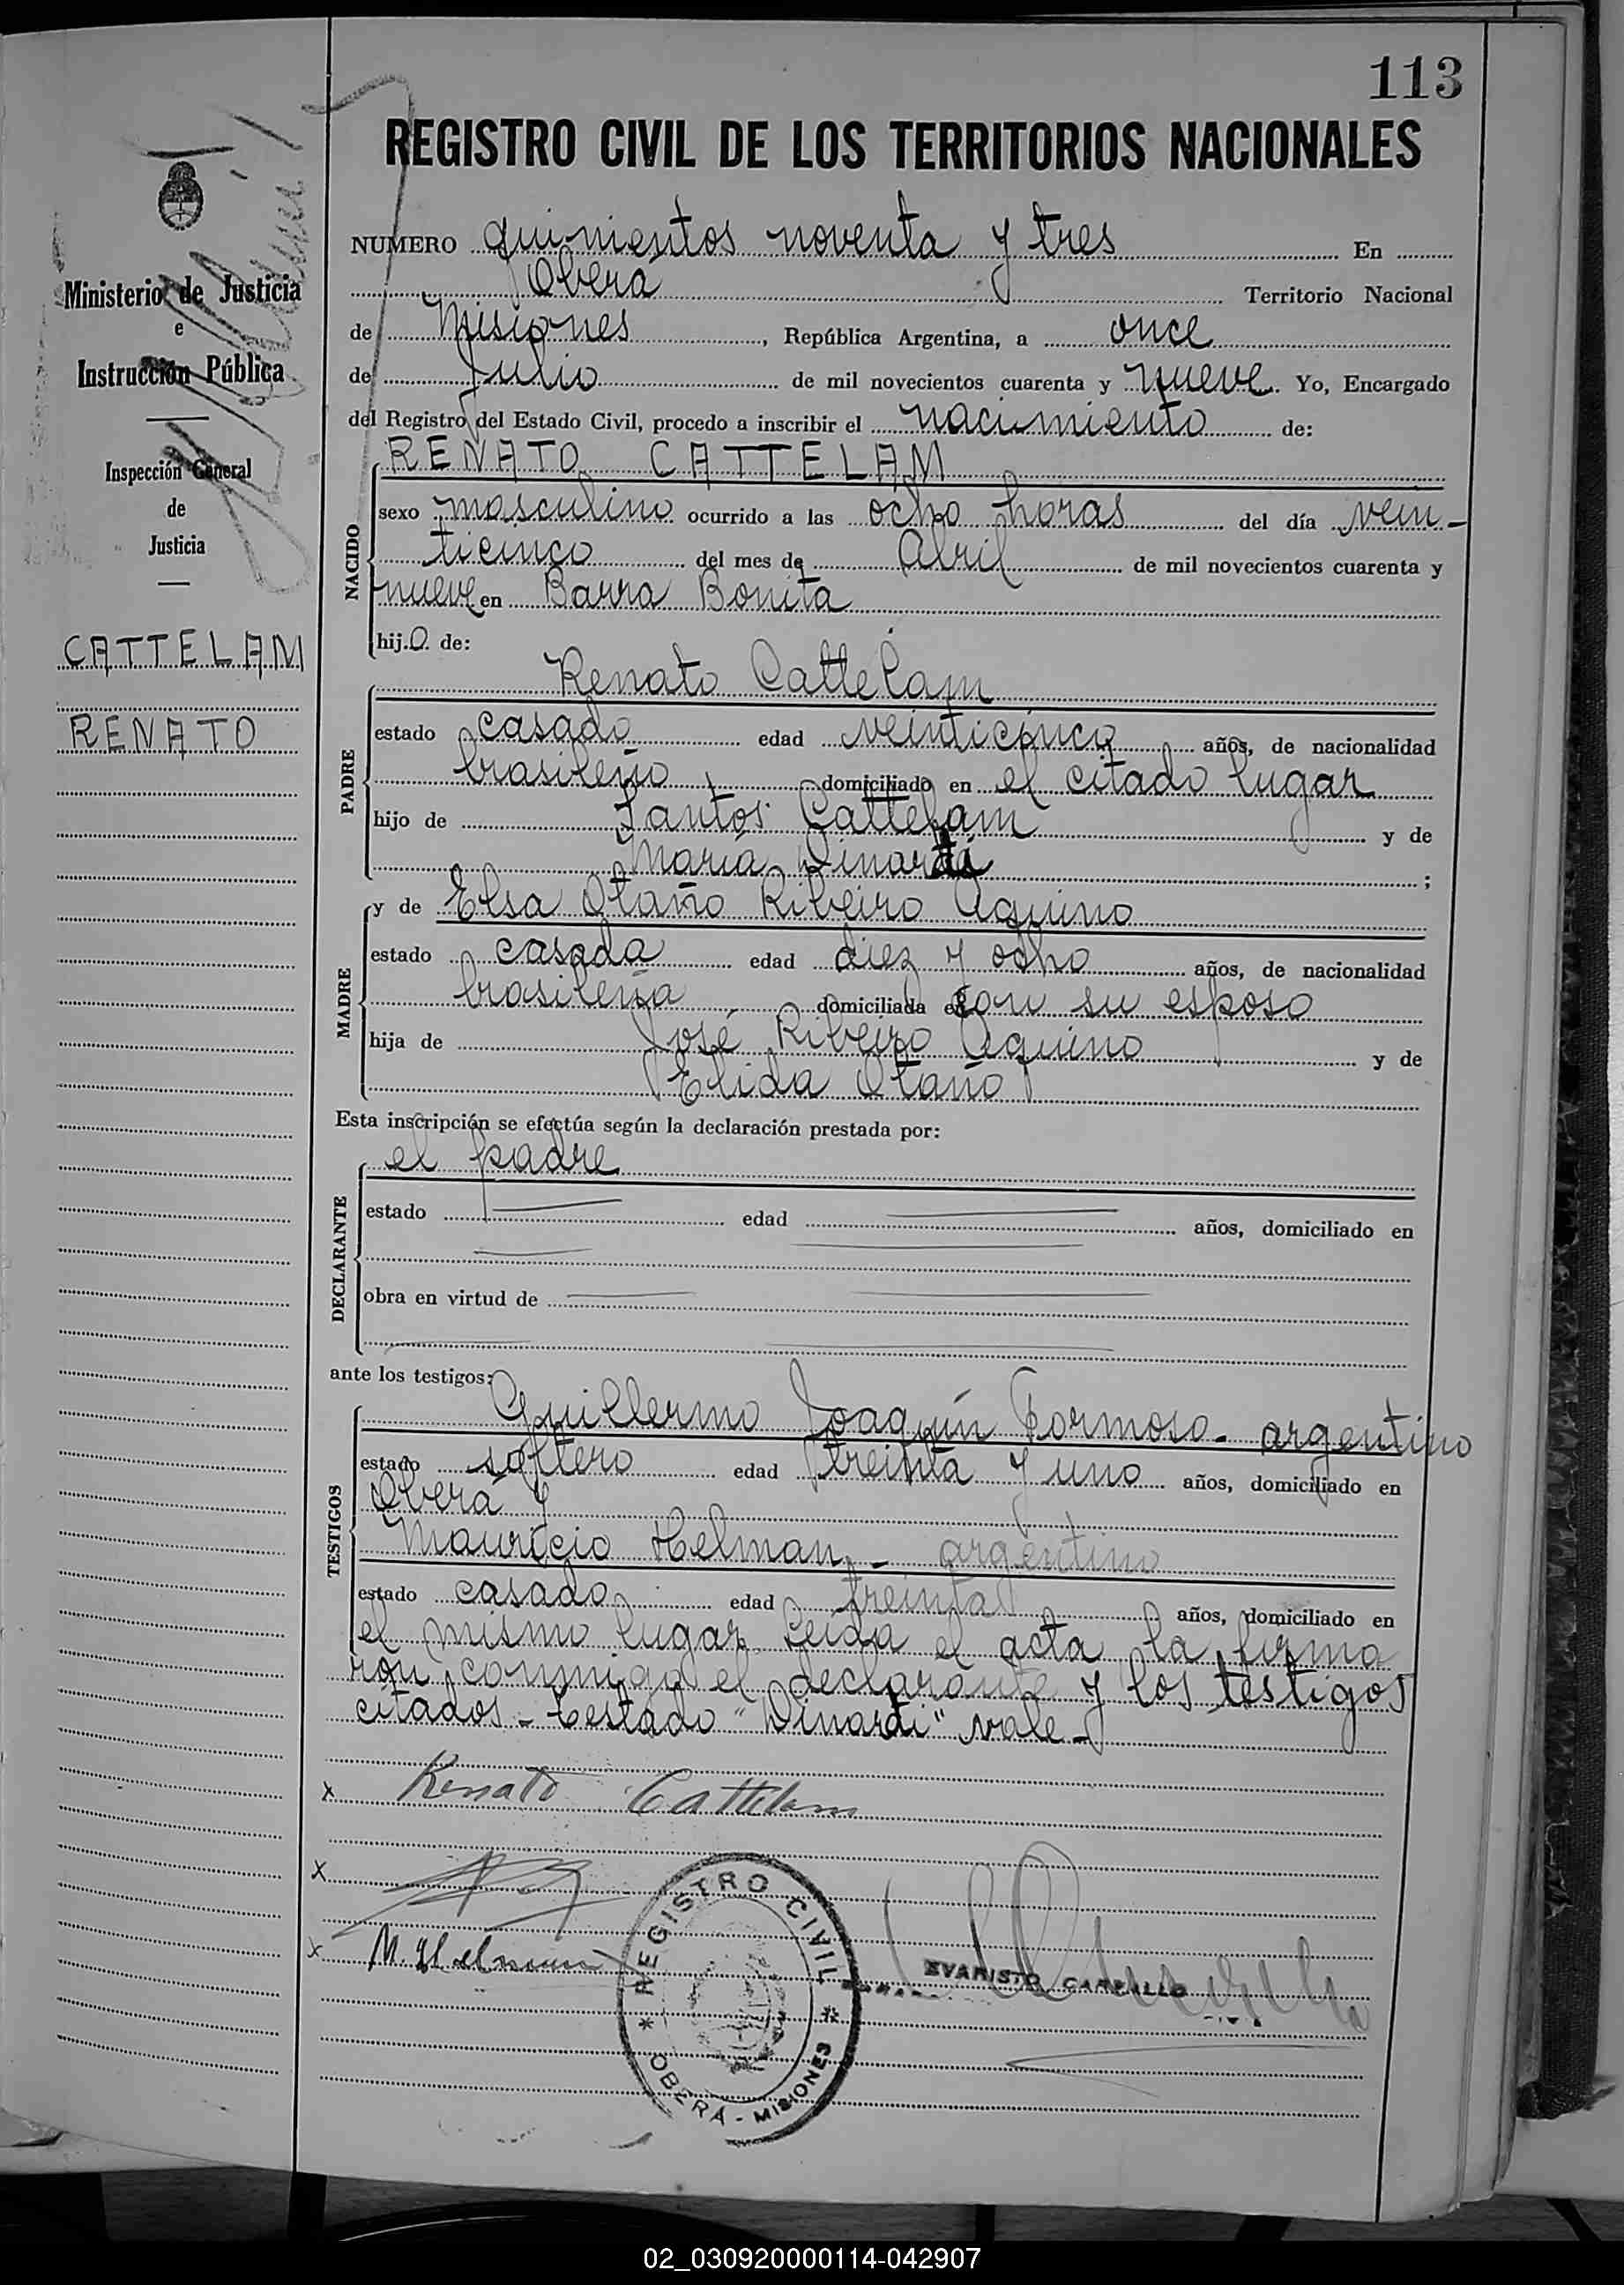 113
REGISTRO CIVIL DE LOS TERRITORIOS NACIONALES
Ministerio de Justicia
e
Instrucción Pública
Inspección General
de
Justicia
CATTELAM
RENATO
NUMERO quinientos noventa y tres En
Oberá Territorio Nacional
de Misiones, República Argentina, a once
de Julio de mil novecientos cuarenta y nueve. Yo, Encargado
del Registro del Estado Civil, procedo a inscribir el nacimiento de:
RENATO CATTELAM
NACIDO
sexo masculino ocurrido a las ocho horas del día vein-
ticinco del mes de Abril de mil novecientos cuarenta y
nueve en Barra Bonita
hijo de:
PADRE
Renato Cattelam
estado casado edad veinticinco años, de nacionalidad
brasileño domiciliado en el citado lugar
hijo de Santos Cattelam y de
María Dinardi;
MADRE
y de Elsa Olaño Ribeiro Aquino
estado casada edad diez y ocho años, de nacionalidad
brasileña domiciliada con su esposo
hija de José Ribeiro Aquino y de
Elida Olaño
Esta inscripción se efectúa según la declaración prestada por:
DECLARANTE
el padre
estado edad años, domiciliado en
obra en virtud de
ante los testigos:
TESTIGOS
Guillermo Joaquín Formoso - argentino
estado soltero edad treinta y uno años, domiciliado en
Oberá y
Mauricio Helman - argentino
estado casado edad treinta años, domiciliado en
el mismo lugar. Leída el acta la firma
ron conmigo el declarante y los testigos
citados - testado "Dinardi" vale -
x Renato Cattelam
x
x M. Helman
REGISTRO CIVIL
* OBERÁ - MISIONES *
EVARISTO CARBALLO
02_030920000114-042907